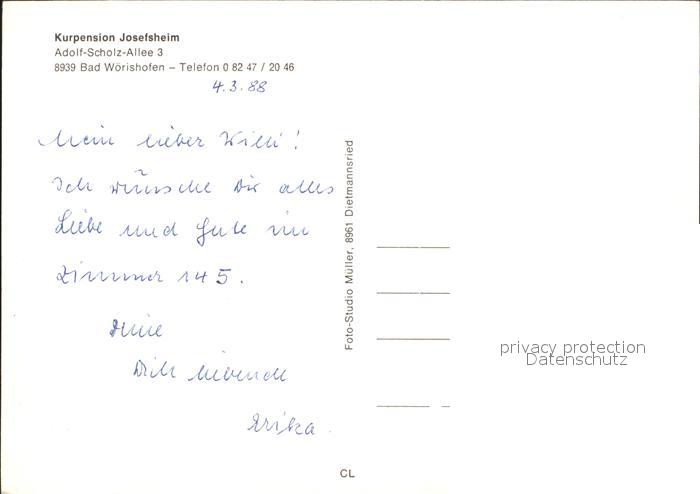 Kurpension Josefsheim
Adolf-Scholz-Allee 3
8939 Bad Wörishofen – Telefon 0 82 47 / 20 46
4.3.88
Mein lieber Willi!
Ich wünsche Dir alles
Liebe und Gute im
Zimmer 145.
Deine
Dich liebende
Erika.
Foto-Studio Müller, 8961 Dietmannsried
privacy protection
Datenschutz
CL